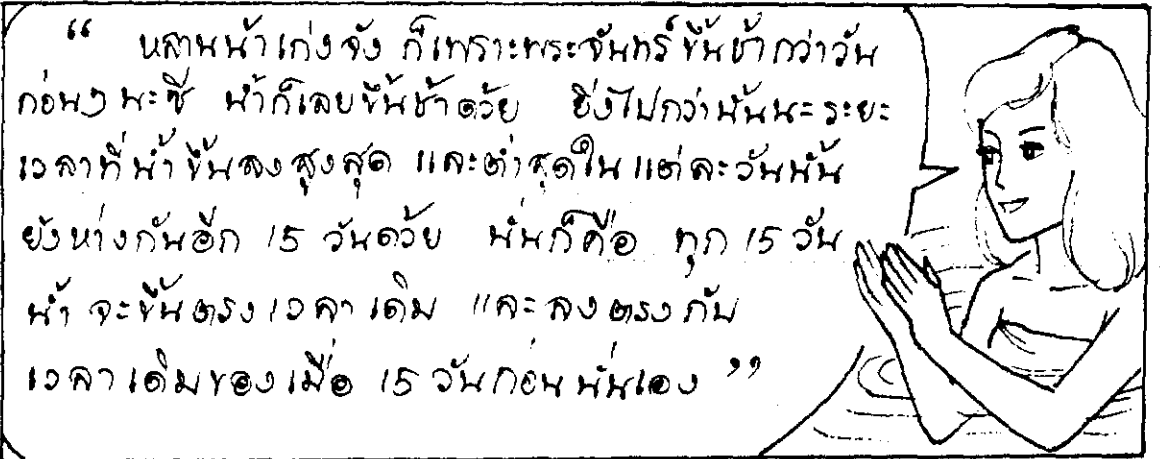 “ หลานน้าเก่งจัง ก็เพราะพระจันทร์ขึ้นช้ากว่าวัน
ก่อนๆ นะซี น้ำก็เลยขึ้นช้าด้วย ยิ่งไปกว่านั้นนะ ระยะ
เวลาที่น้ำขึ้นลงสูงสุด และต่ำสุดในแต่ละวันนั้น
ยังห่างกันอีก 15 วันด้วย นั่นก็คือ ทุก 15 วัน
น้ำ จะขึ้นตรงเวลาเดิม และลงตรงกับ
เวลาเดิมของเมื่อ 15 วันก่อนนั่นเอง ”